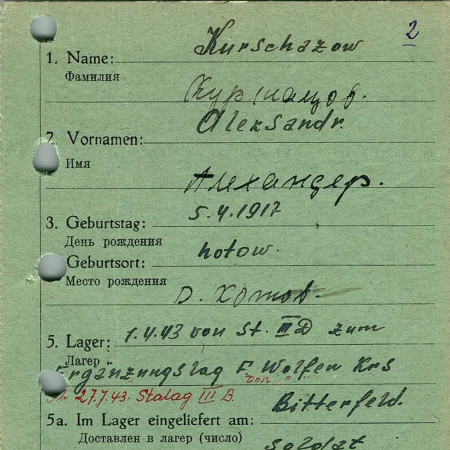 2
1. Name: Kurschazow
Фамилия
Куршацов.
2. Vornamen: Aleksandr.
Имя
Александер.
3. Geburtstag: 5.4.1917
День рождения
Geburtsort: hotow.
Место рождения
д. Хотов.
5. Lager: 1.4.43 von St. III D zum
Лагер
Ergänzungslag F. Wolfen Krs
27.7.43. Stalag III B. von
Bitterfeld.
5a. Im Lager eingeliefert am:
Доставлен в лагер (число)
Soldat